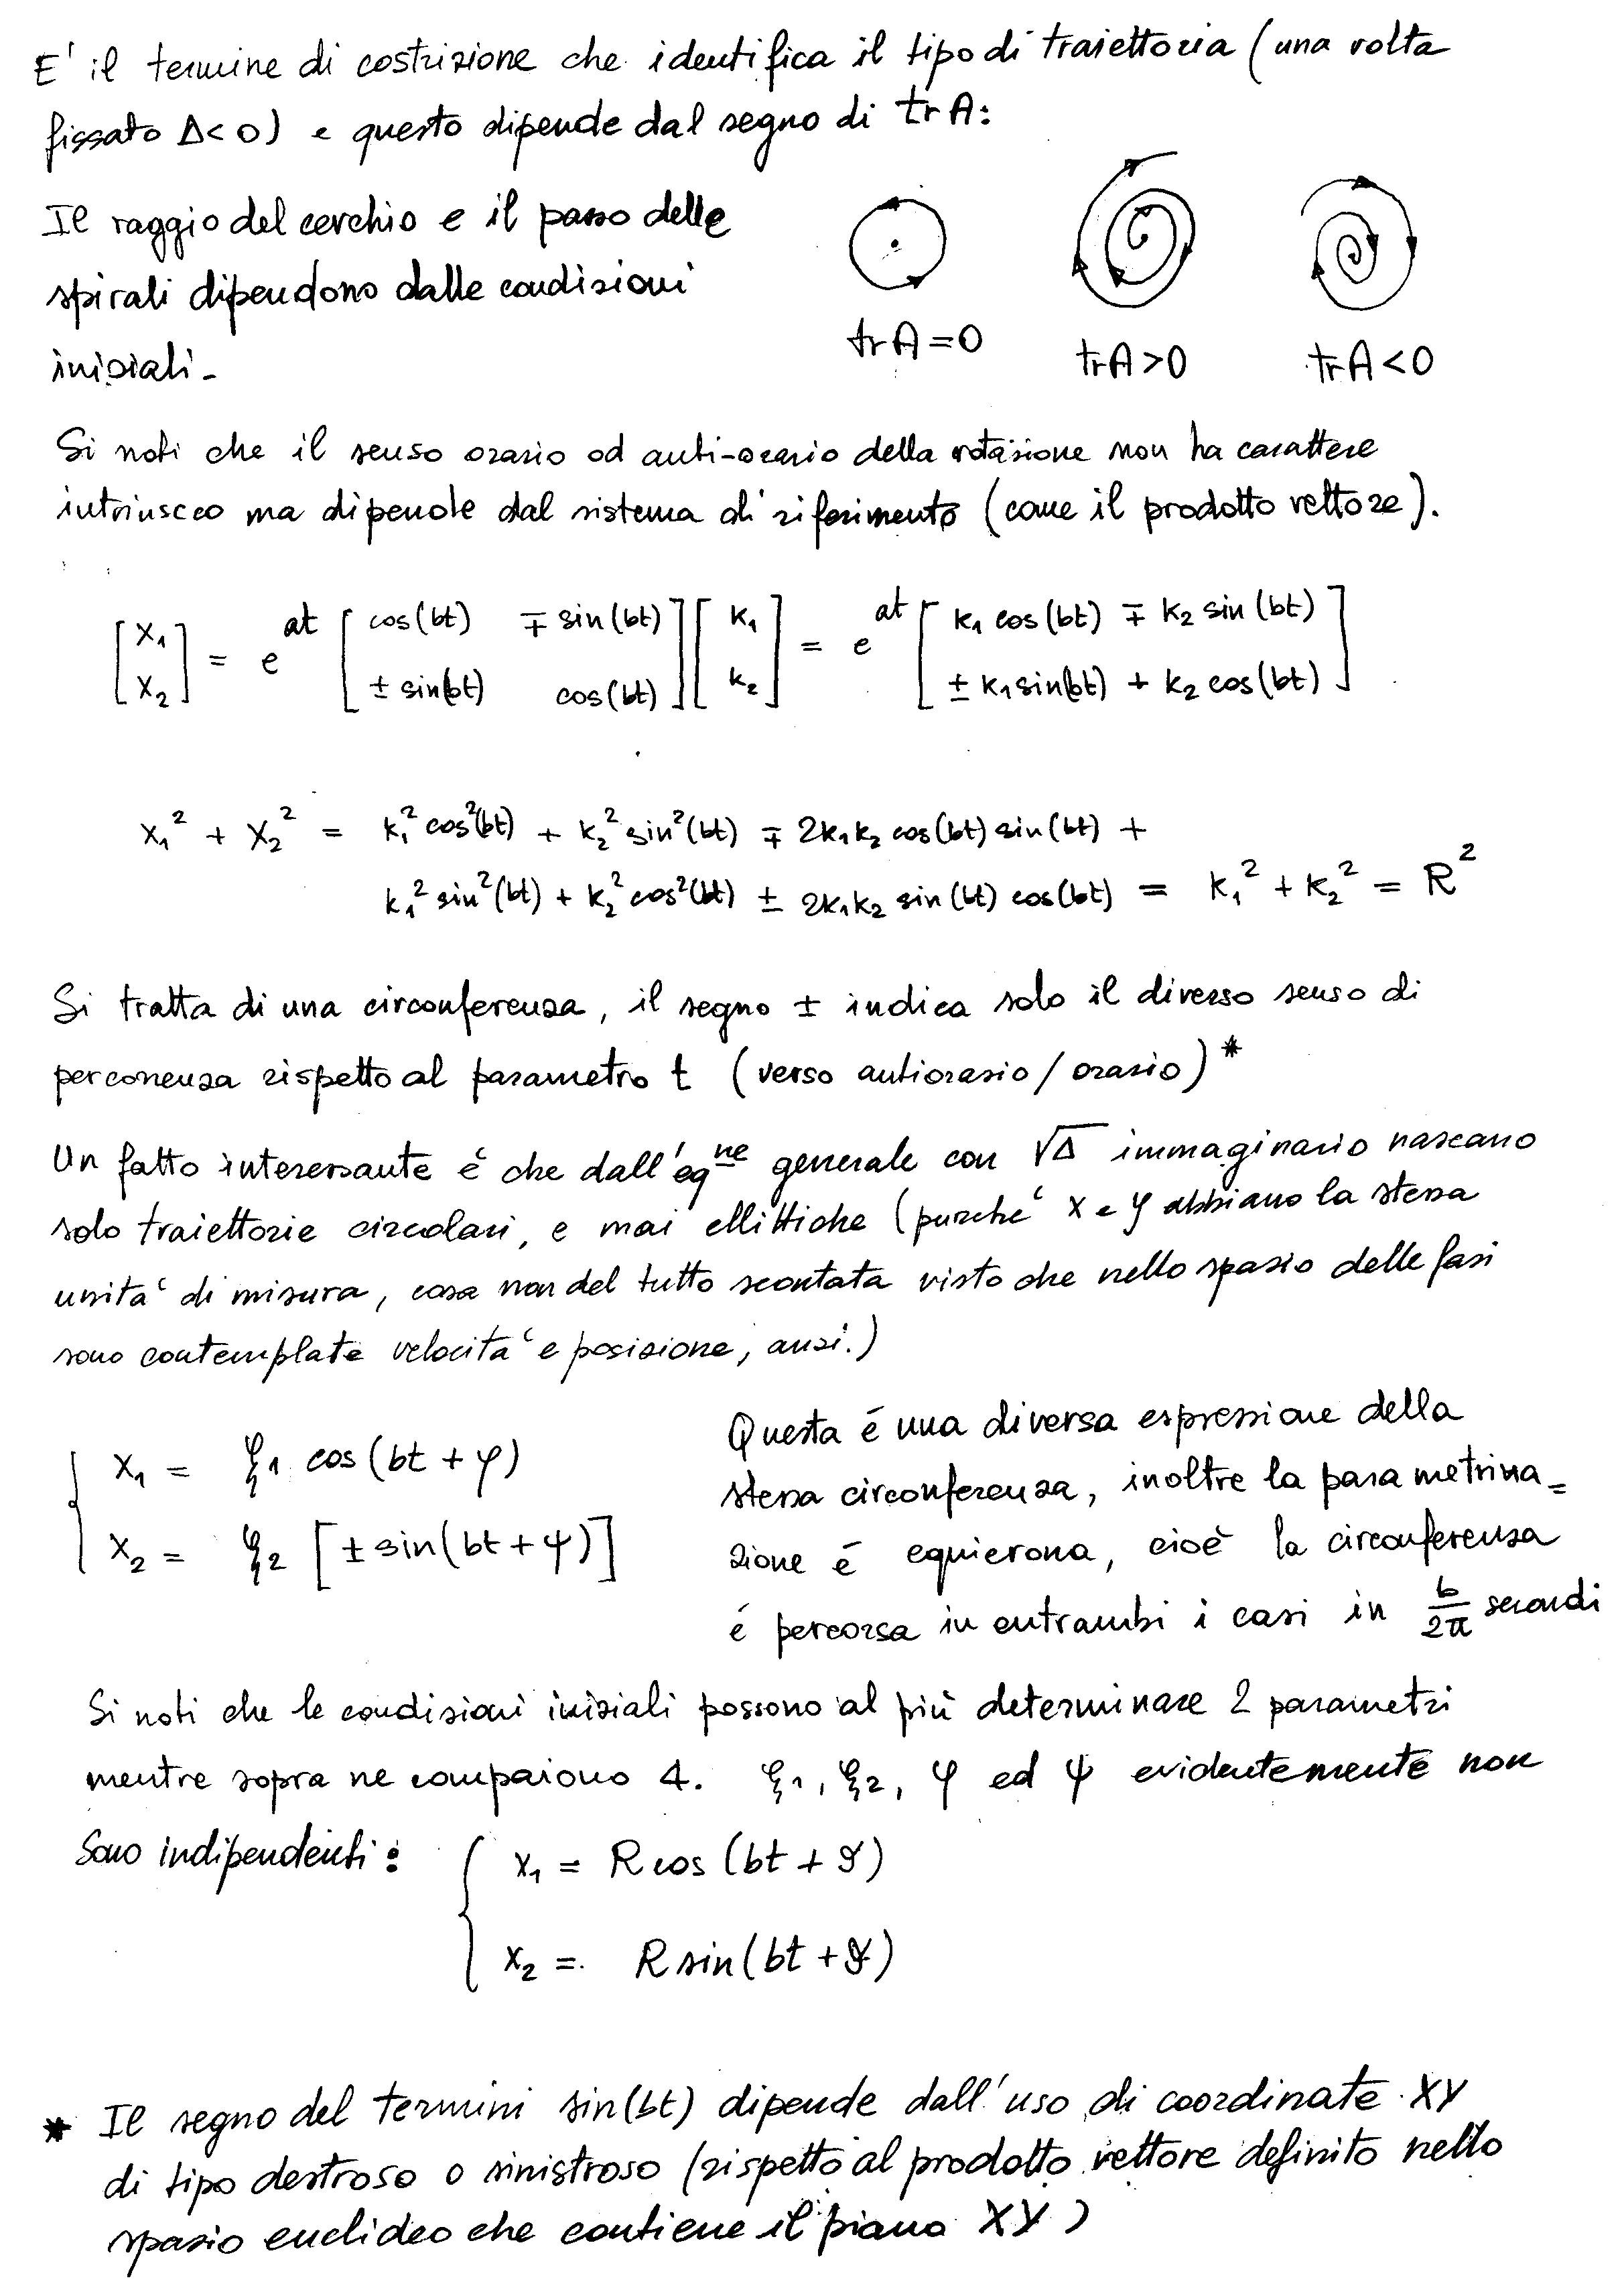 E' il termine di costrizione che identifica il tipo di traiettoria (una volta
fissato Δ<0) e questo dipende dal segno di trA:
Il raggio del cerchio e il passo delle
spirali dipendono dalle condizioni
iniziali-
trA=0
trA>0
trA<0
Si noti che il senso orario od anti-orario della rotazione non ha carattere
intrinseco ma dipende dal sistema di riferimento (come il prodotto vettore).
[x₁ x₂] = e^at [cos(bt) ∓ sin(bt) ± sin(bt) cos(bt)] [k₁ k₂] = e^at [k₁ cos(bt) ∓ k₂ sin(bt) ± k₁ sin(bt) + k₂ cos(bt)]
x₁² + x₂² = k₁² cos²(bt) + k₂² sin²(bt) ∓ 2k₁k₂ cos(bt) sin(bt) +
k₁² sin²(bt) + k₂² cos²(bt) ± 2k₁k₂ sin(bt) cos(bt) = k₁² + k₂² = R²
Si tratta di una circonferenza, il segno ± indica solo il diverso senso di
percorrenza rispetto al parametro t (verso antiorario/orario)*
Un fatto interessante é che dall'eqⁿᵉ generale con √Δ immaginario nascano
solo traiettorie circolari, e mai ellittiche (purche' x e y abbiano la stessa
unita' di misura, cosa non del tutto scontata visto che nello spazio delle fasi
sono contemplate velocita' e posizione, anzi.)
x₁ = ξ₁ cos(bt + φ)
x₂ = ξ₂ [± sin(bt + ψ)]
Questa é una diversa espressione della
stessa circonferenza, inoltre la parametrizza=
zione é equiversa, cioè la circonferenza
é percorsa in entrambi i casi in b/2π secondi
Si noti che le condizioni iniziali possono al più determinare 2 parametri
mentre sopra ne compaiono 4. ξ₁, ξ₂, φ ed ψ evidentemente non
sono indipendenti:
x₁ = R cos (bt + ϑ)
x₂ = R sin(bt + ϑ)
* Il segno del termini sin(bt) dipende dall'uso di coordinate XY
di tipo destroso o sinistroso (rispetto al prodotto vettore definito nello
spazio euclideo che contiene il piano XY)